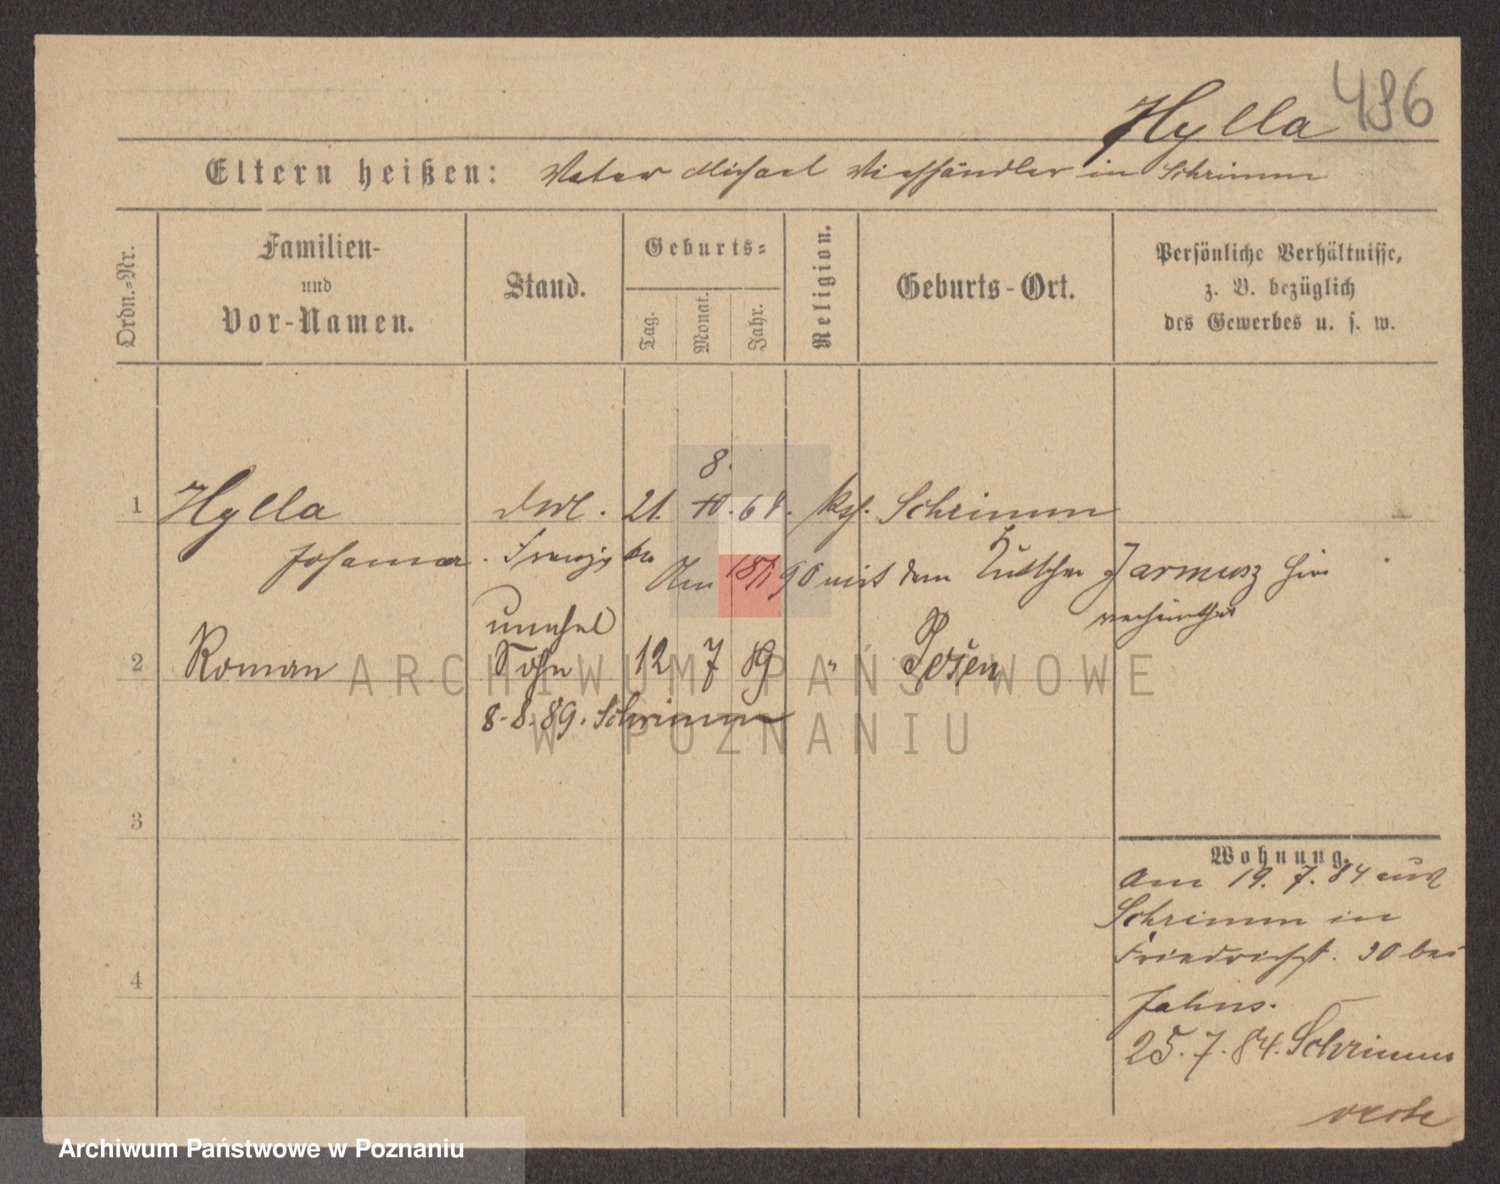 486
Hylla
Eltern heißen: Vater Michael Viehhändler in Schrimm
Ordn.-Nr.
Familien-
und
Vor-Namen.
Stand.
Geburts-
Tag.
Monat.
Jahr.
Religion.
Geburts-Ort.
Persönliche Verhältnisse,
z. B. bezüglich
des Gewerbes u. s. w.
8.
1 Hylla 21. 10. 68. kath. Schrimm
Johanna. Franziska
Am 18/1 90 mit dem Kutscher Jarmusz hier
verheirathet
unehel
2 Roman Sohn 12 7 89 " Posen
8.8.89. Schrimm
3
4
Wohnung.
Am 19.7.84 aus
Schrimm in
Friedrichst. 30 bei
Jahns.
25.7.84. Schrimm
ARCHIWUM PAŃSTWOWE
W POZNANIU
Archiwum Państwowe w Poznaniu